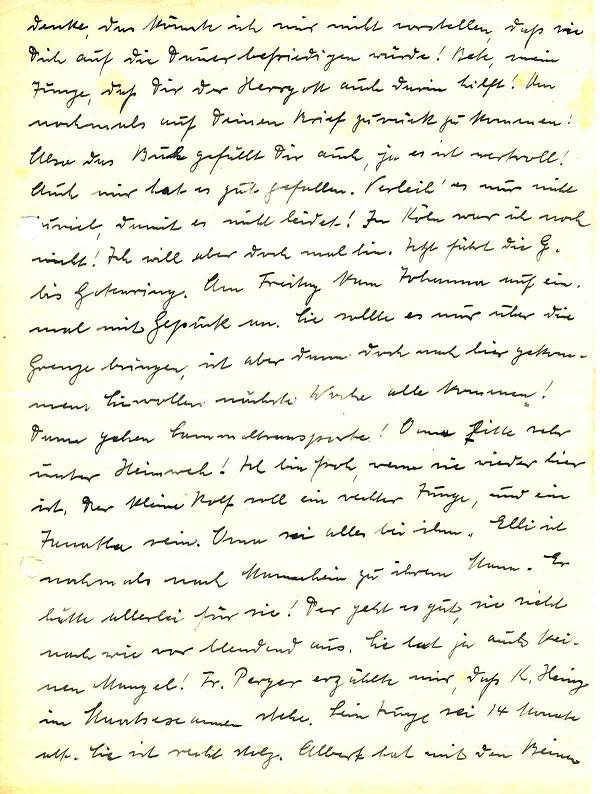 denke, das könnte ich mir nicht vorstellen, daß sie
Dich auf die Dauer befriedigen würde! Bete, mein
Junge, daß Dir der Herrgott auch darin hilft! Um
nochmals auf Deinen Brief zurück zu kommen!
Also das Buch gefällt Dir auch, ja es ist wertvoll!
Auch mir hat es gut gefallen. Verleih' es nur nicht
zuviel, damit es nicht leidet! In Köln war ich noch
nicht! Ich will aber doch mal hin. Jetzt fährt die G.
bis Am Freitag kam Johanna auf ein-
mal mit Gepäck an. Sie sollte es nur über die
Grenze bringen, ist aber dann doch nach hier gekom-
men. Sie wollen nächste Woche alle kommen!
Dann gehen Sammeltransporte! Oma litte sehr
unter Heimweh! Ich bin froh, wenn sie wieder hier
ist. Der kleine Rolf soll ein rechter Junge, und ein
sein. Oma sei alles bei ihm. Elli ist
nochmals nach Mannheim zu ihrem Mann. Er
hätte allerlei für sie! Der geht es gut, sie sieht
nach wie vor blendend aus. Sie hat ja auch kei-
nen Mangel! Fr. Perger erzählte mir, daß K. Heinz
im Staatsexamen stehe. Sein Junge sei 14 Monate
alt. Sie ist recht stolz. Albert hat mit den Beinen